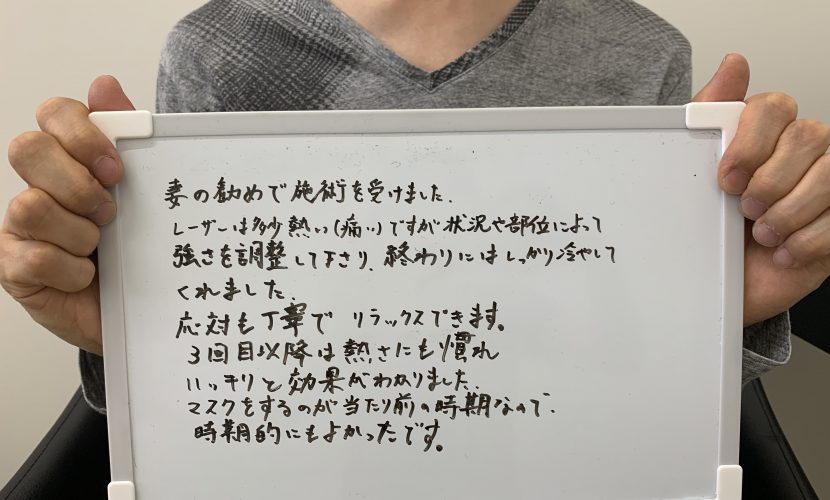 妻の勧めで施術を受けました.
レーザーは多少熱い(痛い)ですが状況や部位によって
強さを調整して下さり、終わりにはしっかり冷やして
くれました.
応対も丁寧で リラックスできます。
3回目以降は熱さにも慣れ
ハッキリと効果がわかりました.
マスクをするのが当たり前の時期なので、
時期的にもよかったです。